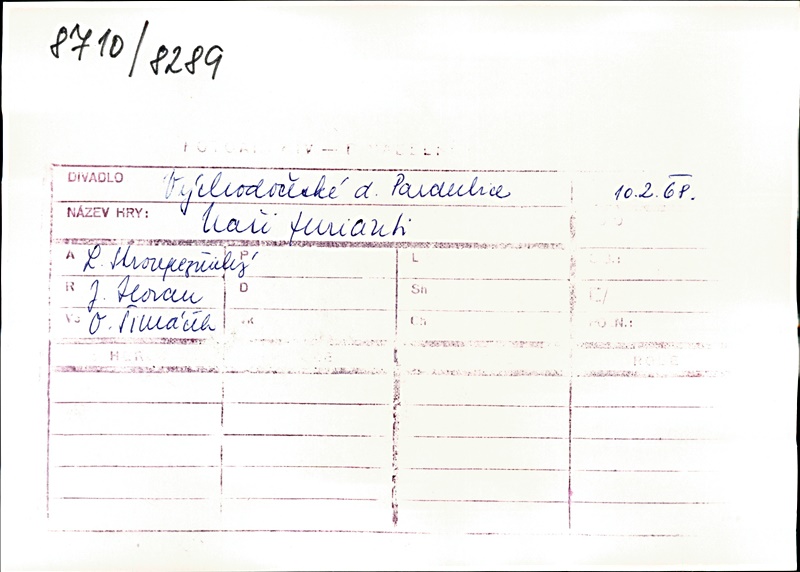 8710/8289
DIVADLO Východočeské d. Pardubice 10.2.68.
NÁZEV HRY: Naši furianti
A L. Stroupežnický P L
R J. Horan D Sn
O. Šimáček Ch